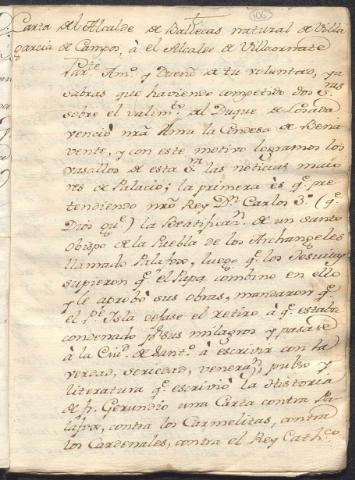 106
Carta del Alcalde de Ballecas natural de Villa
garcia de Campos, à el Alcalde de Villaornate
Am.º y Dueño de tu voluntad, ya
sabras que haviendo competido dos S.ras
sobre el valim.to del Duque de Losada
venció nrã Ama la Condesa de Bena
vente, y con este motivo logramos los
vasallos de esta S.ra las noticias maio
res de Palacio; la primera ès q.e pre
tendiendo nrõ Rey D.n Carlos 3.º (q.e
Dios gu.e) la Beatificaz.n de un santo
obispo de la Puebla de los Archangeles
llamado Palafox, luego q.e los Jesuitas
supieron q.e el Papa combino en ello
y le aprobò sus obras, mandaron q.e
el P.e Isla dejase el retiro à q.e estaba
condenado p.r sus milagros y pasase
à la Ciu.d de Sant.º à escrivir con la
verdad, seriedad, veneraz.n, pulso y
literatura q.e escriviò la Historia
de fr. Gerundio una Carta contra Pa
lafox, contra los Carmelitas, contra
los Cardenales, contra el Rey Cath.co